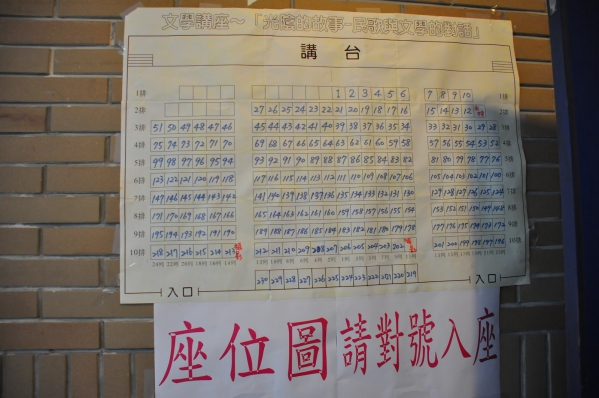 文學講座～「光陰的故事-民歌與文學的對話」
講台
1排 1 2 3 4 5 6 7 8 9 10 1排
2排 27 26 25 24 23 22 21 20 19 18 17 16 15 14 13 12 2排
3排 51 50 49 48 47 46 45 44 43 42 41 40 39 38 37 36 35 34 33 32 31 30 29 28 3排
4排 75 74 73 72 71 70 69 68 67 66 65 64 63 62 61 60 59 58 57 56 55 54 53 52 4排
5排 99 98 97 96 95 94 93 92 91 90 89 88 87 86 85 84 83 82 81 80 79 78 77 76 5排
6排 123 122 121 120 119 118 117 116 115 114 113 112 111 110 109 108 107 106 105 104 103 102 101 100 6排
7排 147 146 145 144 143 142 141 140 139 138 137 136 135 134 133 132 131 130 129 128 127 126 125 124 7排
8排 171 170 169 168 167 166 165 164 163 162 161 160 159 158 157 156 155 154 153 152 151 150 149 148 8排
9排 195 194 193 192 191 190 189 188 187 186 185 184 183 182 181 180 179 178 177 176 175 174 173 172 9排
10排 218 217 216 215 214 213 212 211 210 209 208 207 206 205 204 203 202 201 200 199 198 197 196 10排
230 229 228 227 226 225 224 223 222 221 220 219
入口 入口
座位圖請對號入座